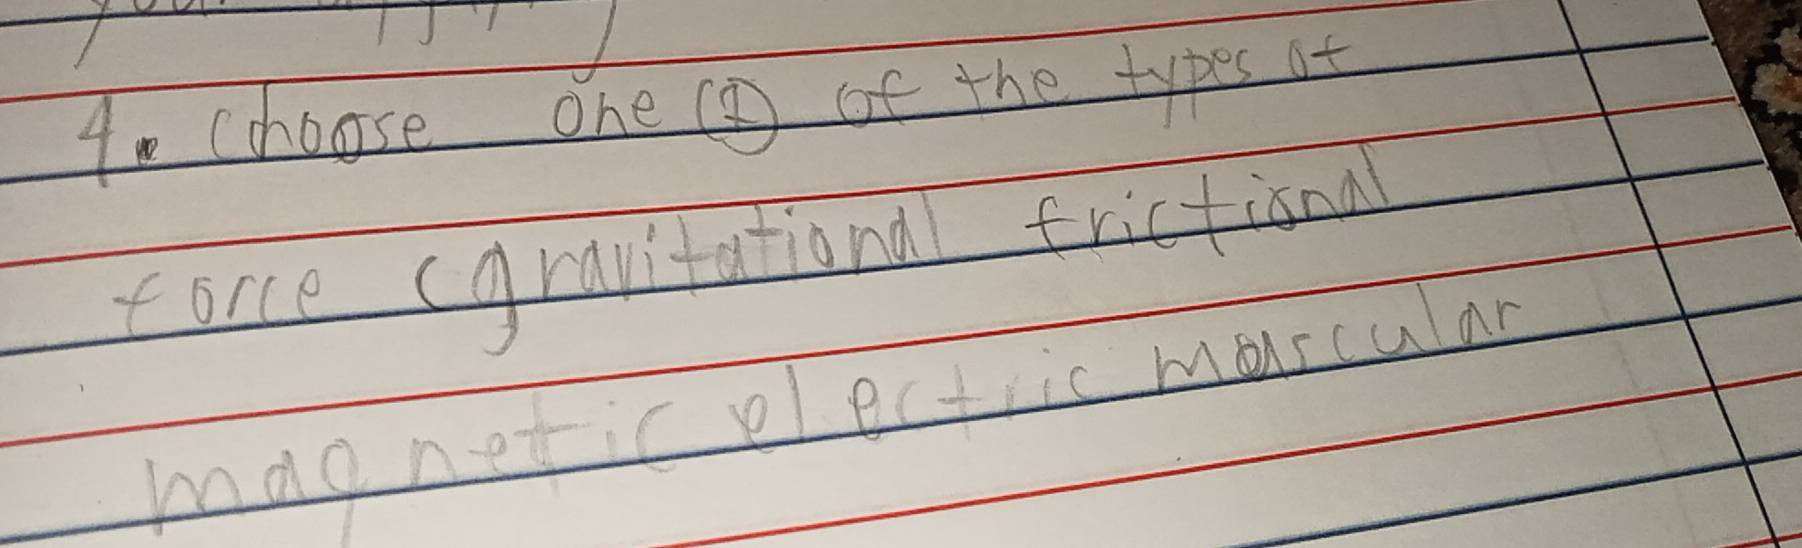 4. choose one (1) of the types of
force (gravitational frictional
magnetic electric mouscular